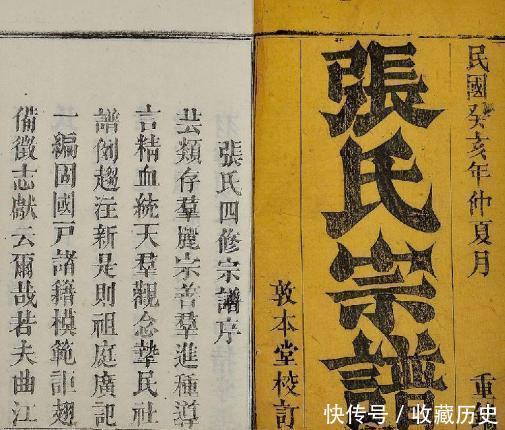 民國癸亥年仲夏月 重
張氏宗譜
敦本堂校訂
張氏四修宗譜序
芸類存羣麗宗善羣進種導
言精血統天羣觀念摯民社
譜閎趨注新是則祖庭廣記
一編固國戶諸籍模範詎翅
備徵志獻云爾哉若夫曲江
快传号 / 收藏历史